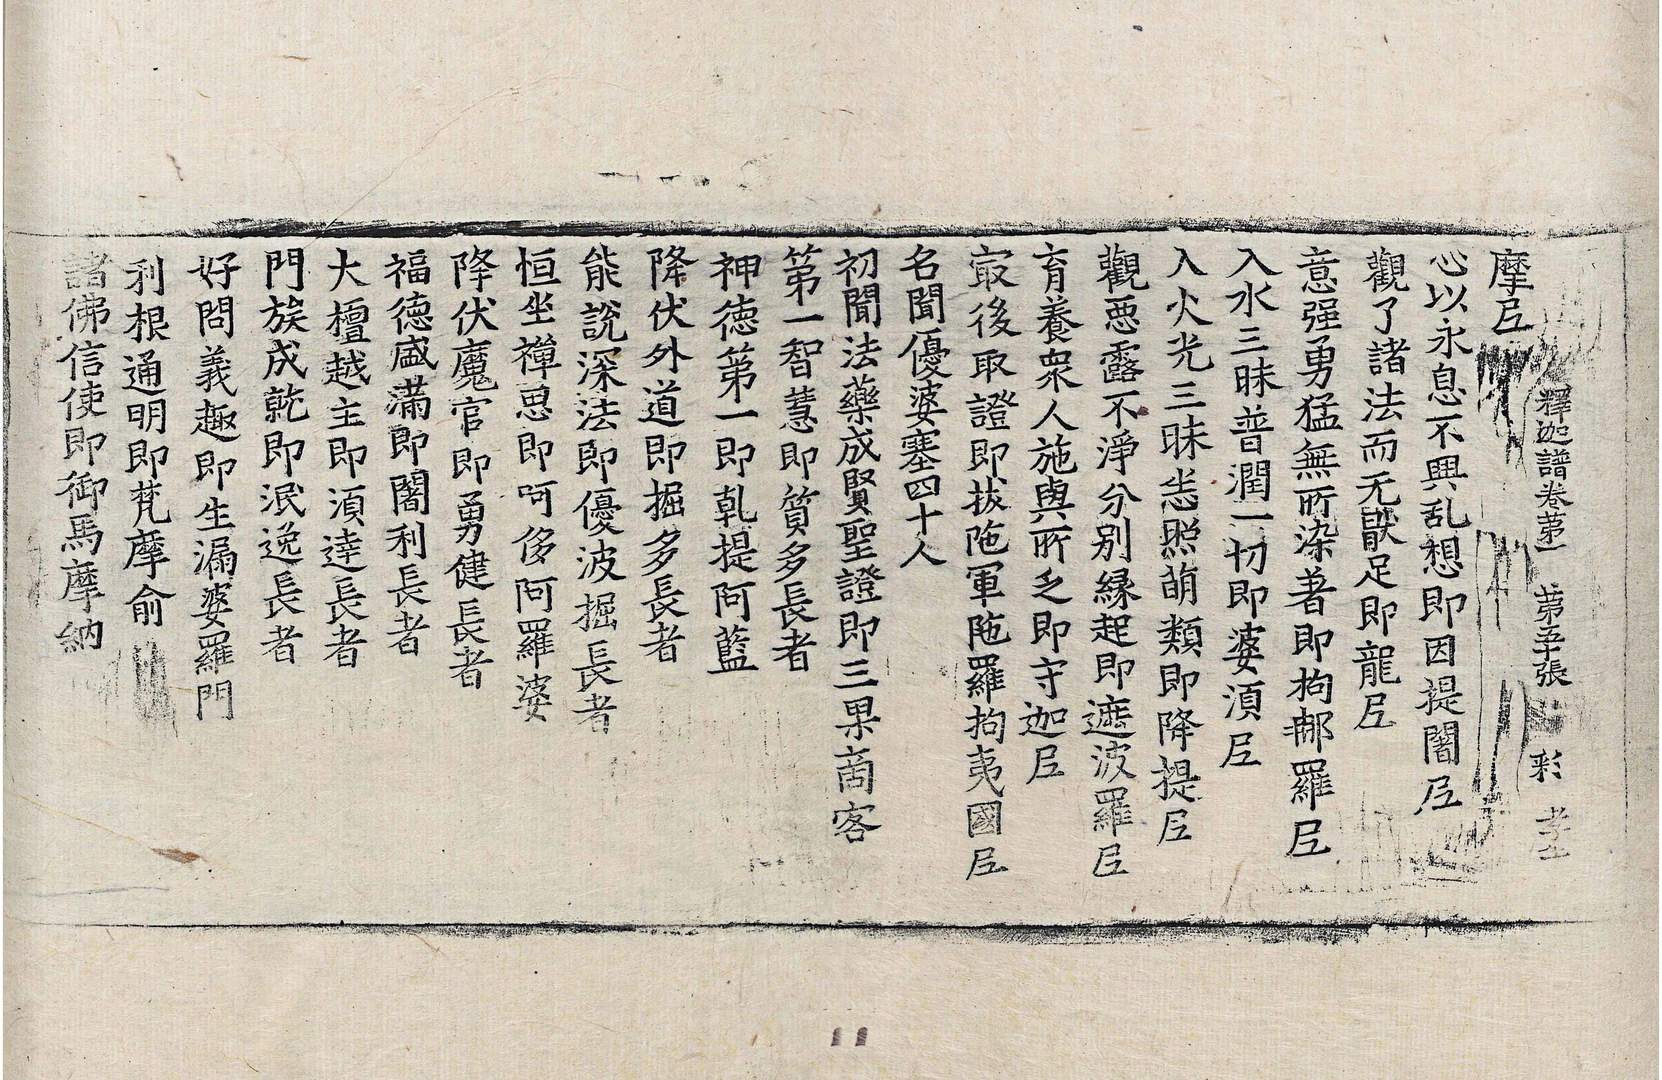 釋迦譜卷苐一 苐五張 彩
摩𡰱
心以永息不興乱想即因提闍𡰱
觀了諸法而无猒足即龍𡰱
意强勇猛無所染著即拘𨚗羅𡰱
入水三昧普潤一切即婆湏𡰱
入火光三昧悉照萌類即降提𡰱
觀惡露不淨分别縁起即遮波羅𡰱
育養衆人施與所乏即守迦𡰱
㝡後取證即拔陁軍陁羅拘夷國𡰱
名聞優婆塞四十人
初聞法藥成賢聖證即三果啇客
第一智慧即質多長者
神德第一即乹提阿藍
降伏外道即掘多長者
能說深法即優波掘長者
恒坐禪思即呵侈阿羅婆
降伏魔官即勇健長者
福德盛滿即闍利長者
大檀越主即湏達長者
門族成乾即泯逸長者
好問義趣即生漏婆羅門
利根通明即梵摩俞
諸佛信使即御馬摩納
11